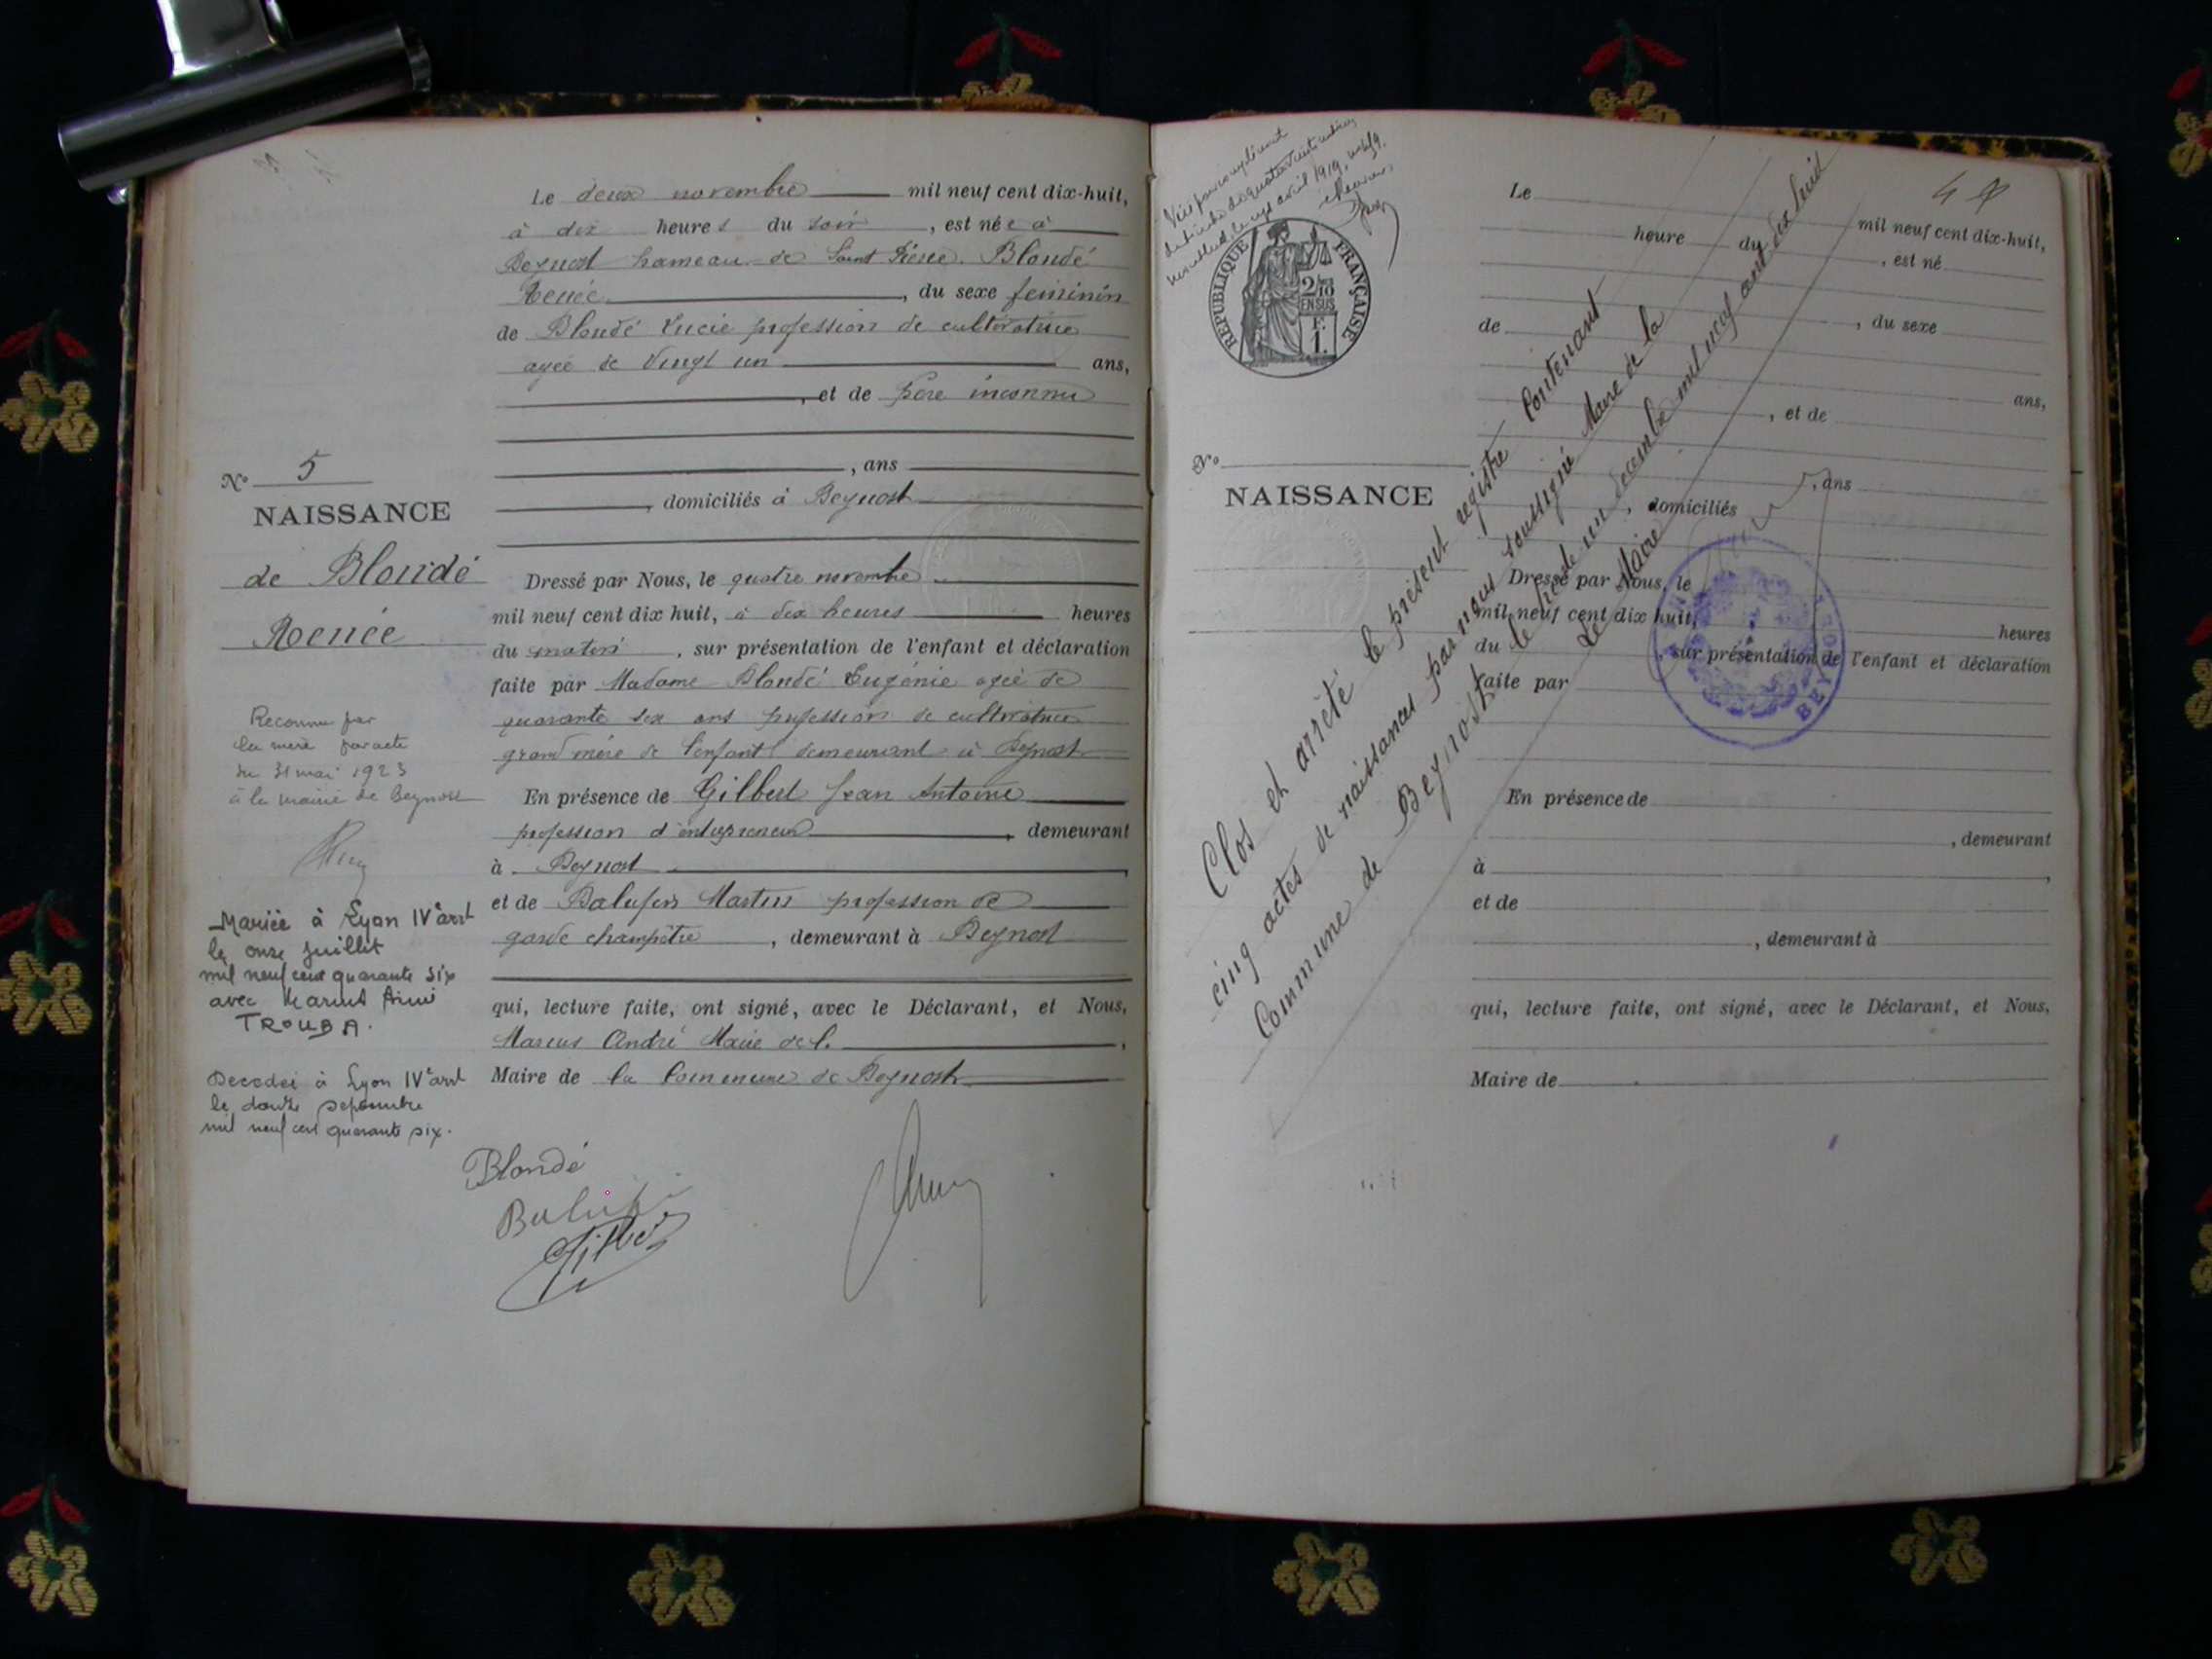 Le deux novembre mil neuf cent dix-huit,
à dix heures du soir, est née à
Beynost hameau de Saint Pierre. Blondé
Renée, du sexe feminin
de Blondé Lucie profession de cultivatrice
agée de vingt un ans,
, et de père inconnu
, ans
, domiciliés à Beynost
Dressé par Nous, le quatre novembre
mil neuf cent dix huit, à dix heures heures
du matin, sur présentation de l'enfant et déclaration
faite par Madame Blondé Eugénie agée de
quarante six ans profession de cultivatrice
grand mère de l'enfant demeurant à Beynost
En présence de Gilbert Jean Antoine
profession d'entrepreneur, demeurant
à Beynost,
et de Balufin Martin profession de
garde champêtre, demeurant à Beynost
qui, lecture faite, ont signé, avec le Déclarant, et Nous,
Marcus André Maire de l.,
Maire de la Commune de Beynost
N° 5
NAISSANCE
de Blondé
Renée
Reconnue par
la mère par acte
du 31 mai 1923
à la mairie de Beynost
Mariée à Lyon IVe arrt
le onze juillet
mil neuf cent quarante six
avec Marius Aimé
TROUBA.
Decedée à Lyon IVe arrt
le douze septembre
mil neuf cent quarante six.
Blondé
Gilbert
1919
RÉPUBLIQUE FRANÇAISE
2/10
EN SUS
F.
1.
N°
NAISSANCE
Le mil neuf cent dix-huit,
heure du, est né
, du sexe
de
ans,
, et de
, ans
, domiciliés
Dressé par Nous, le
mil neuf cent dix huit, heures
du, sur présentation de l'enfant et déclaration
faite par
En présence de
, demeurant
à,
et de
, demeurant à
qui, lecture faite, ont signé, avec le Déclarant, et Nous,
Maire de
Clos et arrêté le présent registre contenant
cinq actes de naissances par nous soussigné Maire de la
Commune de Beynost le trente un decembre mil neuf cent dix huit
Le Maire
BEYNOST